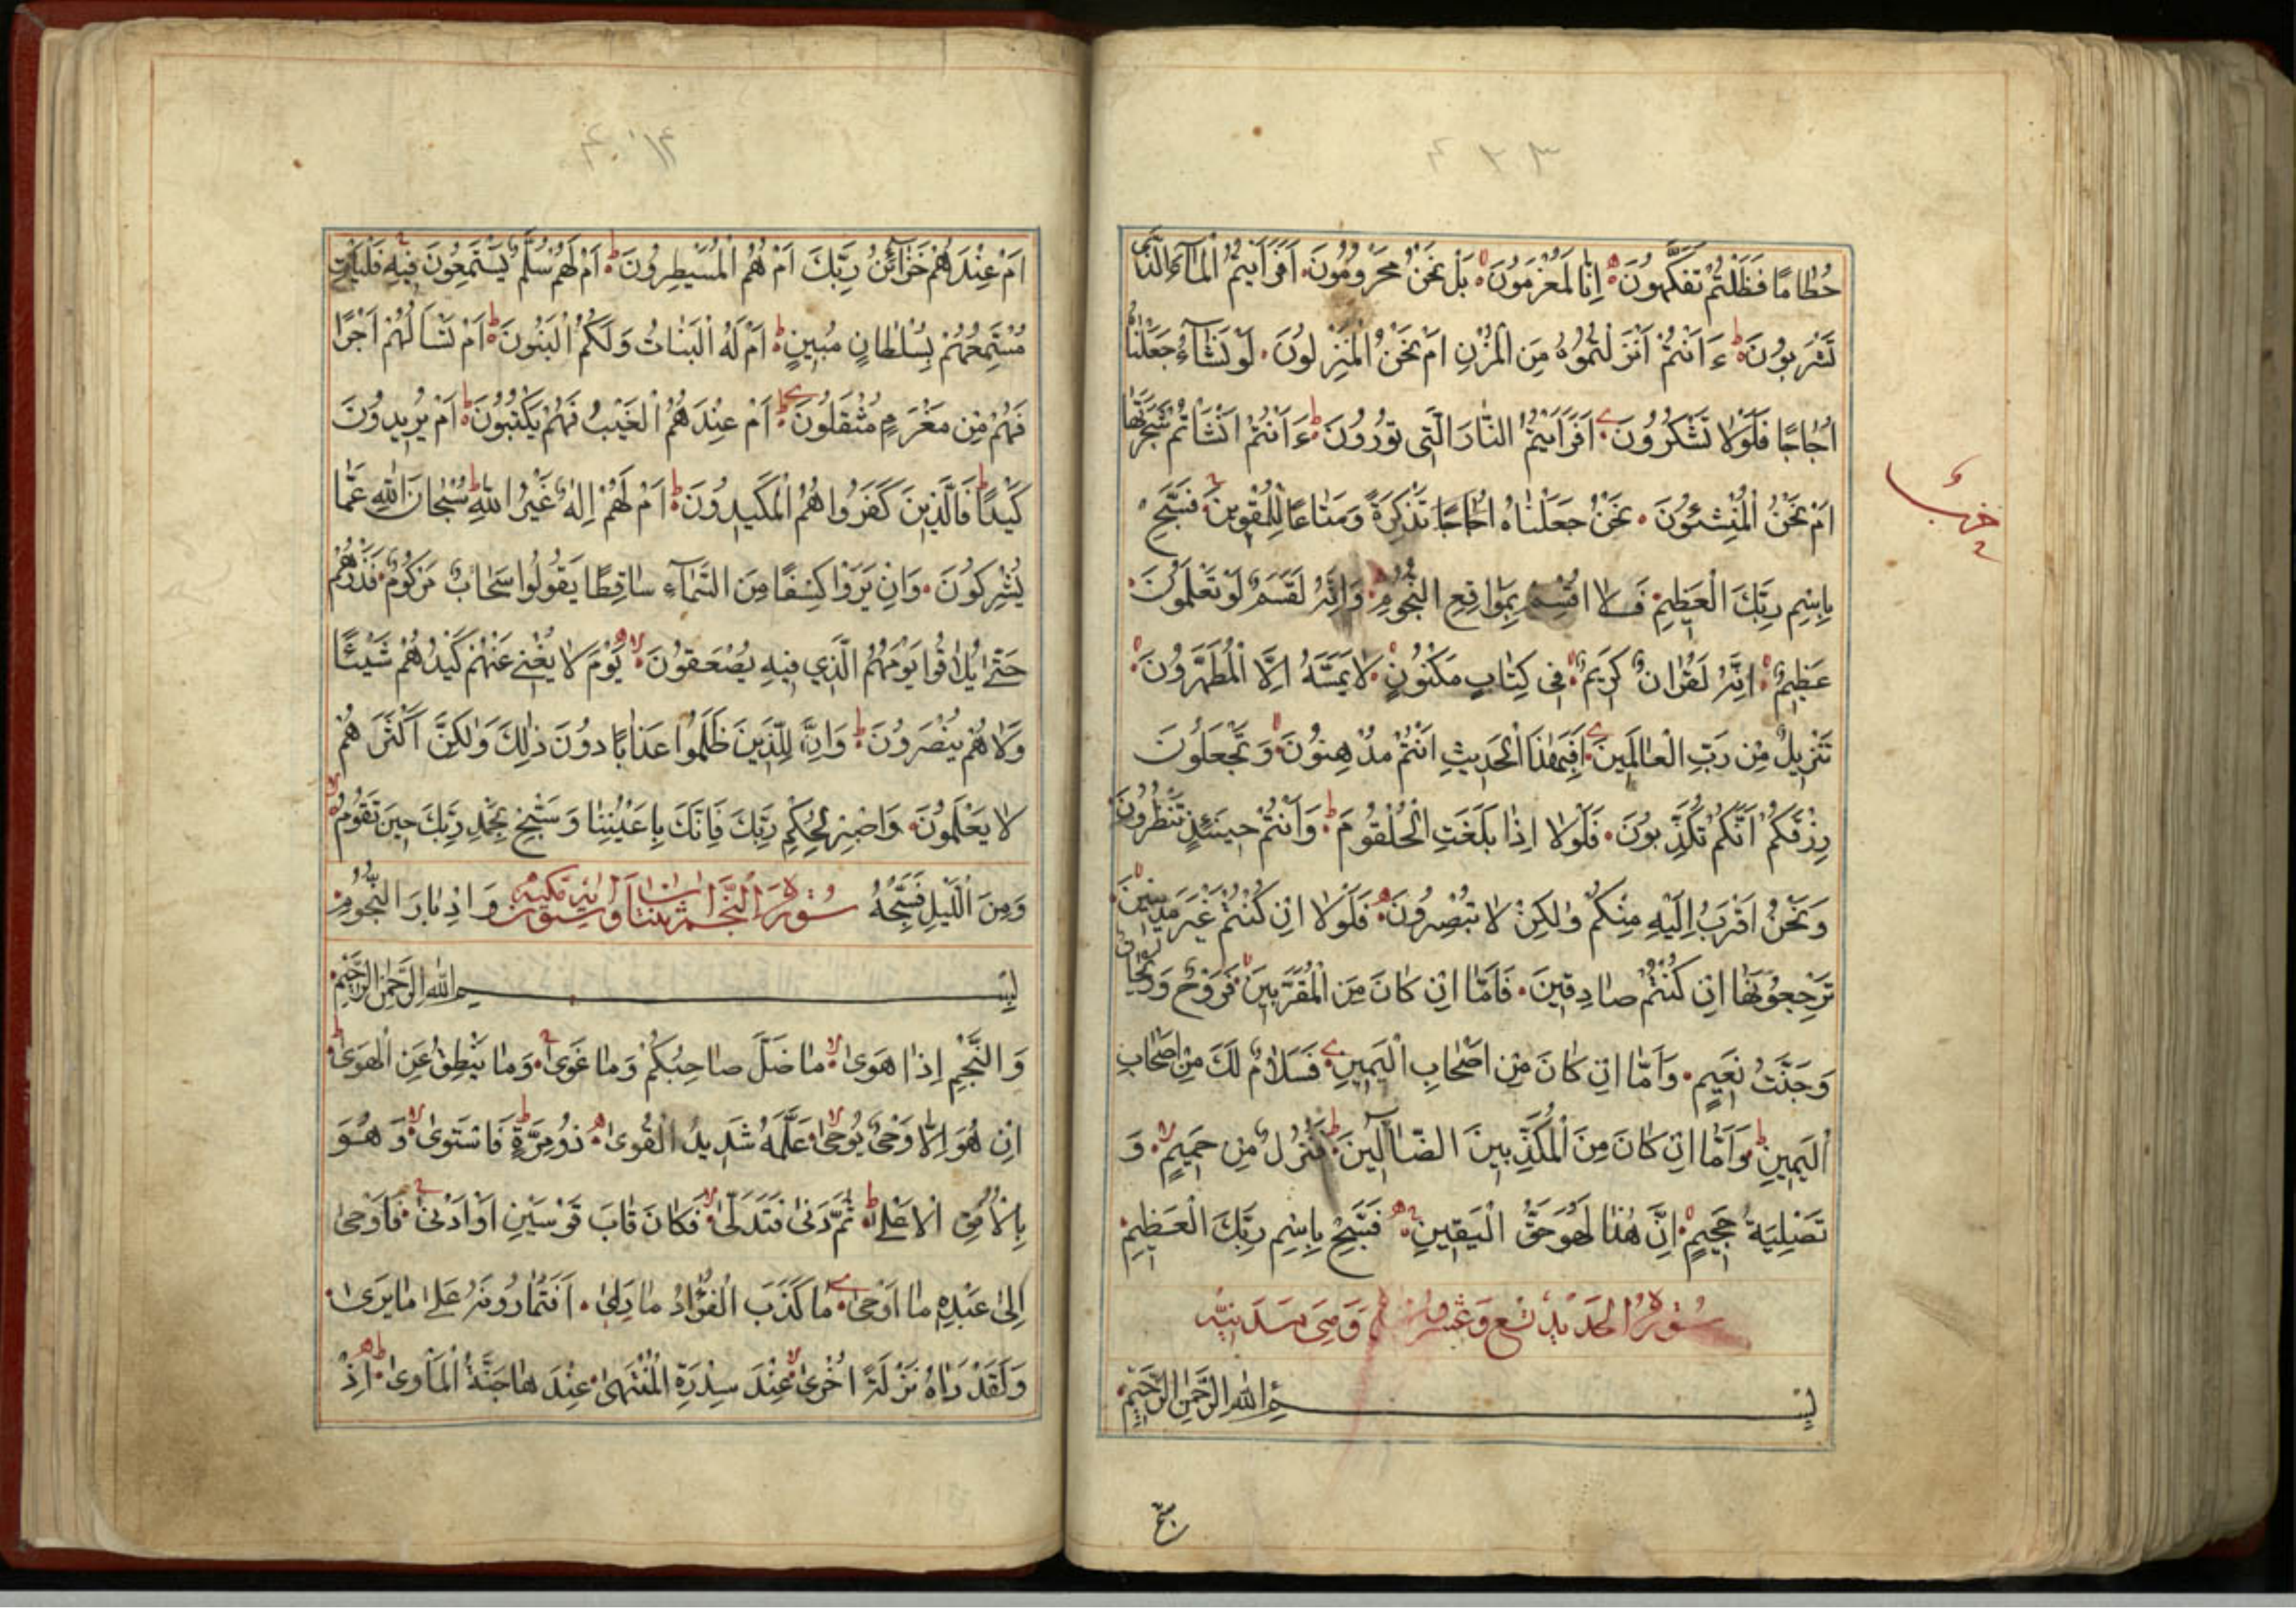 ٤٣٣
حُطَامًا فَظَلْتُمْ تَفَكَّهُونَ اِنَّا لَمُغْرَمُونَ بَلْ نَحْنُ مَحْرُومُونَ اَفَرَاَيْتُمُ الْمَآءَ الَّذى
تَشْرَبُونَ ءَاَنْتُمْ اَنْزَلْتُمُوهُ مِنَ الْمُزْنِ اَمْ نَحْنُ الْمُنْزِلُونَ لَوْ نَشَآءُ جَعَلْنَاهُ
اُجَاجًا فَلَوْلَا تَشْكُرُونَ اَفَرَاَيْتُمُ النَّارَ الَّتِى تُورُونَ ءَاَنْتُمْ اَنْشَاْتُمْ شَجَرَتَهَا
اَمْ نَحْنُ الْمُنْشِئُونَ نَحْنُ جَعَلْنَاهَا تَذْكِرَةً وَمَتَاعًا لِلْمُقْوِينَ فَسَبِّحْ
بِاسْمِ رَبِّكَ الْعَظِيمِ فَلَا اُقْسِمُ بِمَوَاقِعِ النُّجُومِ وَاِنَّهُ لَقَسَمٌ لَوْ تَعْلَمُونَ
عَظِيمٌ اِنَّهُ لَقُرْاٰنٌ كَرِيمٌ فِى كِتَابٍ مَكْنُونٍ لَا يَمَسُّهُ اِلَّا الْمُطَهَّرُونَ
تَنْزِيلٌ مِنْ رَبِّ الْعَالَمِينَ اَفَبِهٰذَا الْحَدِيثِ اَنْتُمْ مُدْهِنُونَ وَتَجْعَلُونَ
رِزْقَكُمْ اَنَّكُمْ تُكَذِّبُونَ فَلَوْلَا اِذَا بَلَغَتِ الْحُلْقُومَ وَاَنْتُمْ حِينَئِذٍ تَنْظُرُونَ
وَنَحْنُ اَقْرَبُ اِلَيْهِ مِنْكُمْ وَلٰكِنْ لَا تُبْصِرُونَ فَلَوْلَا اِنْ كُنْتُمْ غَيْرَ مَدِينِينَ
تَرْجِعُونَهَا اِنْ كُنْتُمْ صَادِقِينَ فَاَمَّا اِنْ كَانَ مِنَ الْمُقَرَّبِينَ فَرَوْحٌ وَرَيْحَانٌ
وَجَنَّتُ نَعِيمٍ وَاَمَّا اِنْ كَانَ مِنْ اَصْحَابِ الْيَمِينِ فَسَلَامٌ لَكَ مِنْ اَصْحَابِ
الْيَمِينِ وَاَمَّا اِنْ كَانَ مِنَ الْمُكَذِّبِينَ الضَّآلِّينَ فَنُزُلٌ مِنْ حَمِيمٍ وَ
تَصْلِيَةُ جَحِيمٍ اِنَّ هٰذَا لَهُوَ حَقُّ الْيَقِينِ فَسَبِّحْ بِاسْمِ رَبِّكَ الْعَظِيمِ
سُورَةُ الْحَدِيدِ تِسْعٌ وَعِشْرُونَ وَهِىَ مَدَنِيَّة
بِسْمِ اللّٰهِ الرَّحْمٰنِ الرَّحِيمِ
سبح
اَمْ عِنْدَهُمْ خَزَآئِنُ رَبِّكَ اَمْ هُمُ الْمُسَيْطِرُونَ اَمْ لَهُمْ سُلَّمٌ يَسْتَمِعُونَ فِيهِ فَلْيَأْتِ
مُسْتَمِعُهُمْ بِسُلْطَانٍ مُبِينٍ اَمْ لَهُ الْبَنَاتُ وَلَكُمُ الْبَنُونَ اَمْ تَسْاَلُهُمْ اَجْرًا
فَهُمْ مِنْ مَغْرَمٍ مُثْقَلُونَ اَمْ عِنْدَهُمُ الْغَيْبُ فَهُمْ يَكْتُبُونَ اَمْ يُرِيدُونَ
كَيْدًا فَالَّذِينَ كَفَرُوا هُمُ الْمَكِيدُونَ اَمْ لَهُمْ اِلٰهٌ غَيْرُ اللّٰهِ سُبْحَانَ اللّٰهِ عَمَّا
يُشْرِكُونَ وَاِنْ يَرَوْا كِسْفًا مِنَ السَّمَآءِ سَاقِطًا يَقُولُوا سَحَابٌ مَرْكُومٌ فَذَرْهُمْ
حَتّٰى يُلَاقُوا يَوْمَهُمُ الَّذِي فِيهِ يُصْعَقُونَ يَوْمَ لَا يُغْنِى عَنْهُمْ كَيْدُهُمْ شَيْئًا
وَلَا هُمْ يُنْصَرُونَ وَاِنَّ لِلَّذِينَ ظَلَمُوا عَذَابًا دُونَ ذٰلِكَ وَلٰكِنَّ اَكْثَرَهُمْ
لَا يَعْلَمُونَ وَاصْبِرْ لِحُكْمِ رَبِّكَ فَاِنَّكَ بِاَعْيُنِنَا وَسَبِّحْ بِحَمْدِ رَبِّكَ حِينَ تَقُومُ
وَمِنَ اللَّيْلِ فَسَبِّحْهُ وَاِدْبَارَ النُّجُومِ
سُورَةُ النَّجْم
بِسْمِ اللّٰهِ الرَّحْمٰنِ الرَّحِيمِ
وَالنَّجْمِ اِذَا هَوٰى مَا ضَلَّ صَاحِبُكُمْ وَمَا غَوٰى وَمَا يَنْطِقُ عَنِ الْهَوٰى
اِنْ هُوَ اِلَّا وَحْىٌ يُوحٰى عَلَّمَهُ شَدِيدُ الْقُوٰى ذُو مِرَّةٍ فَاسْتَوٰى وَهُوَ
بِالْاُفُقِ الْاَعْلٰى ثُمَّ دَنٰى فَتَدَلّٰى فَكَانَ قَابَ قَوْسَيْنِ اَوْ اَدْنٰى فَاَوْحٰى
اِلٰى عَبْدِهِ مَا اَوْحٰى مَا كَذَبَ الْفُؤَادُ مَا رَاٰى اَفَتُمَارُونَهُ عَلٰى مَا يَرٰى
وَلَقَدْ رَاٰهُ نَزْلَةً اُخْرٰى عِنْدَ سِدْرَةِ الْمُنْتَهٰى عِنْدَهَا جَنَّةُ الْمَاْوٰى اِذْ